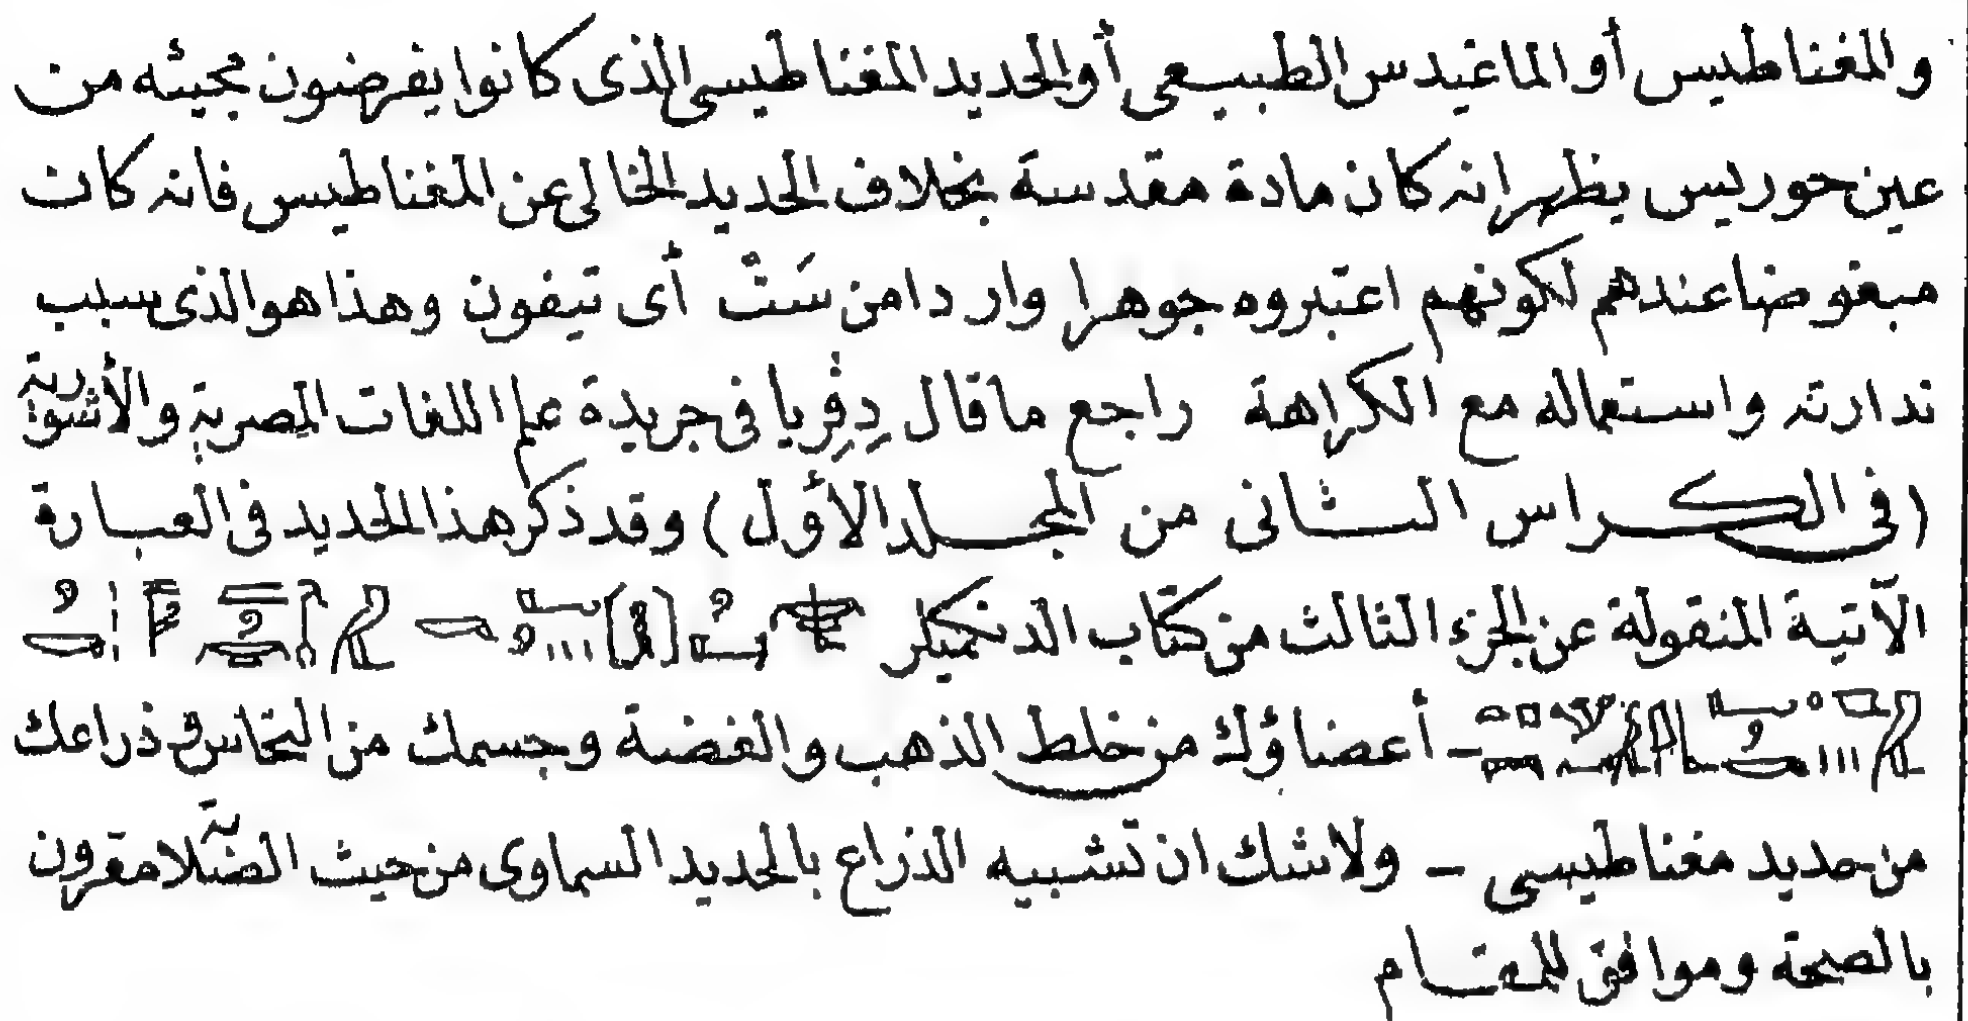 والمغناطيس أو الماغيدس الطبيعى أو الحديد المغناطيسى الذى كانوا يفرضون مجيئه من
عين حوريس يظهر انه كان مادة مقدسة بخلاف الحديد الخالى عن المغناطيس فانه كان
مبغوضا عندهم لكونهم اعتبروه جوهرا واردا من سَتْ أى تيفون وهذا هو الذى سبب
ندارته واستعماله مع الكراهة راجع ما قال دِفِريا فى جريدة علم اللغات المصرية والأشورية
(فى الكراس الثانى من المجلد الأول) وقد ذكر هذا الحديد فى العبارة
الآتية المنقولة عن الجزء الثالث من كتاب الدنكميلر
– أعضاؤك من خلط الذهب والفضة وجسمك من النحاس وذراعك
من حديد مغناطيسى – ولا شك ان تشبيه الذراع بالحديد السماوى من حيث الصلابة مقرون
بالصحة وموافق للمقام